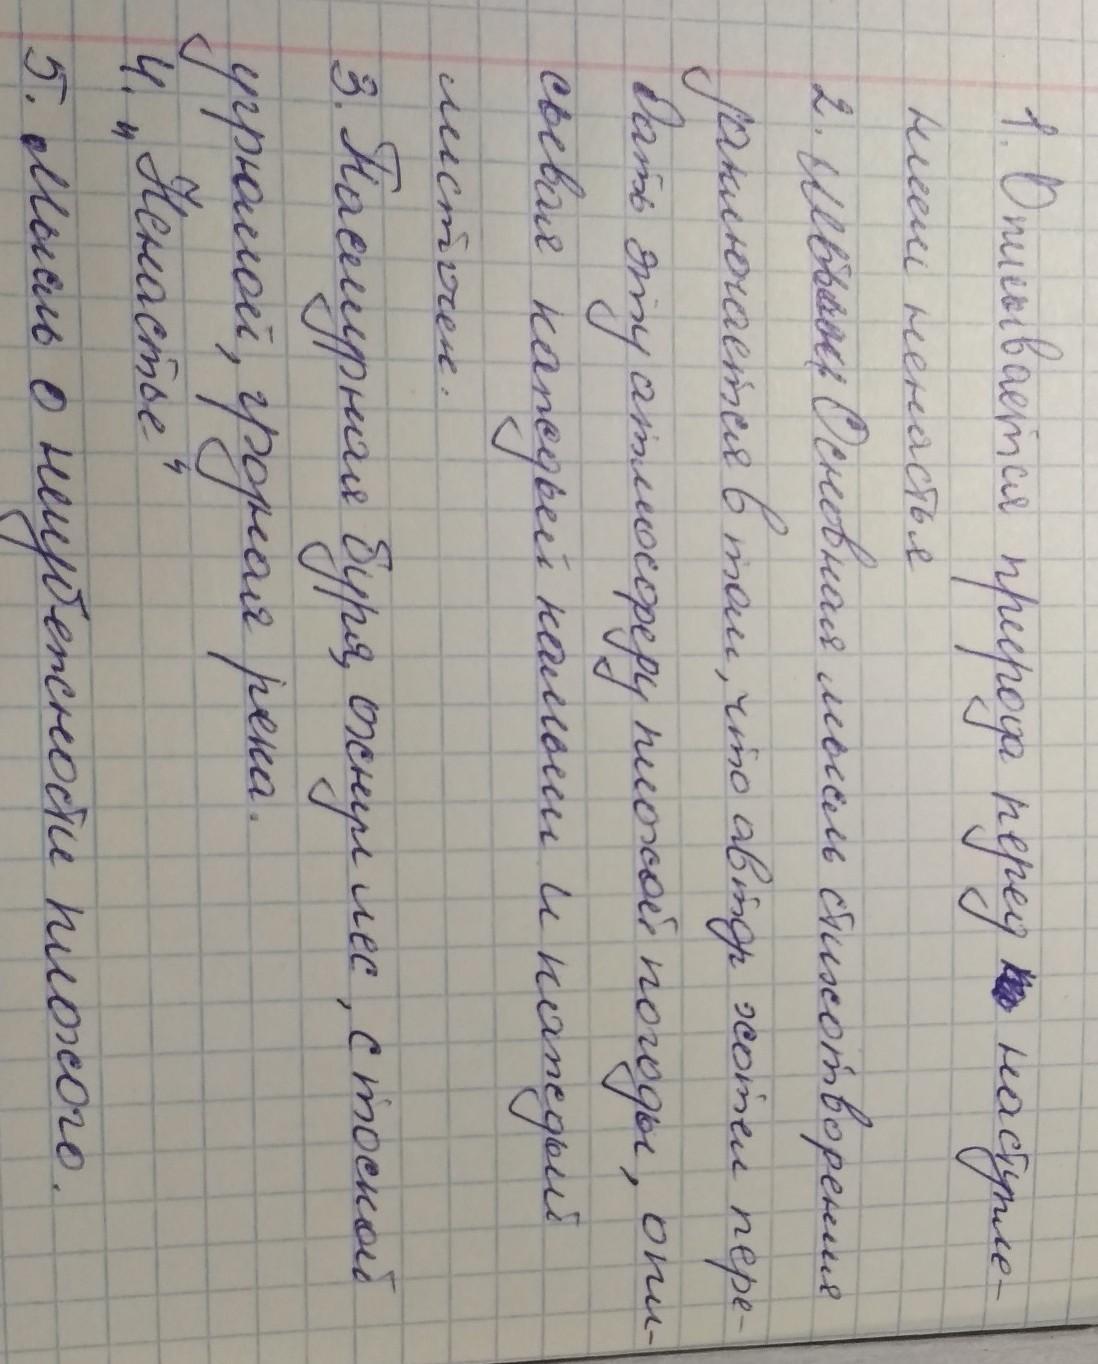 1. Описывается природа перед наступле-
нием ненастья
2. Основная мысль стихотворения
заключается в том, что автор хотел пере-
дать эту атмосферу плохой погоды, опи-
сывая каждый камыш и каждый
листочек.
3. Пасмурная буря, ожил лес, с тоской
угрюмой, грозная река.
4. „Ненастье"
5. Мысль о неизбежности плохого.